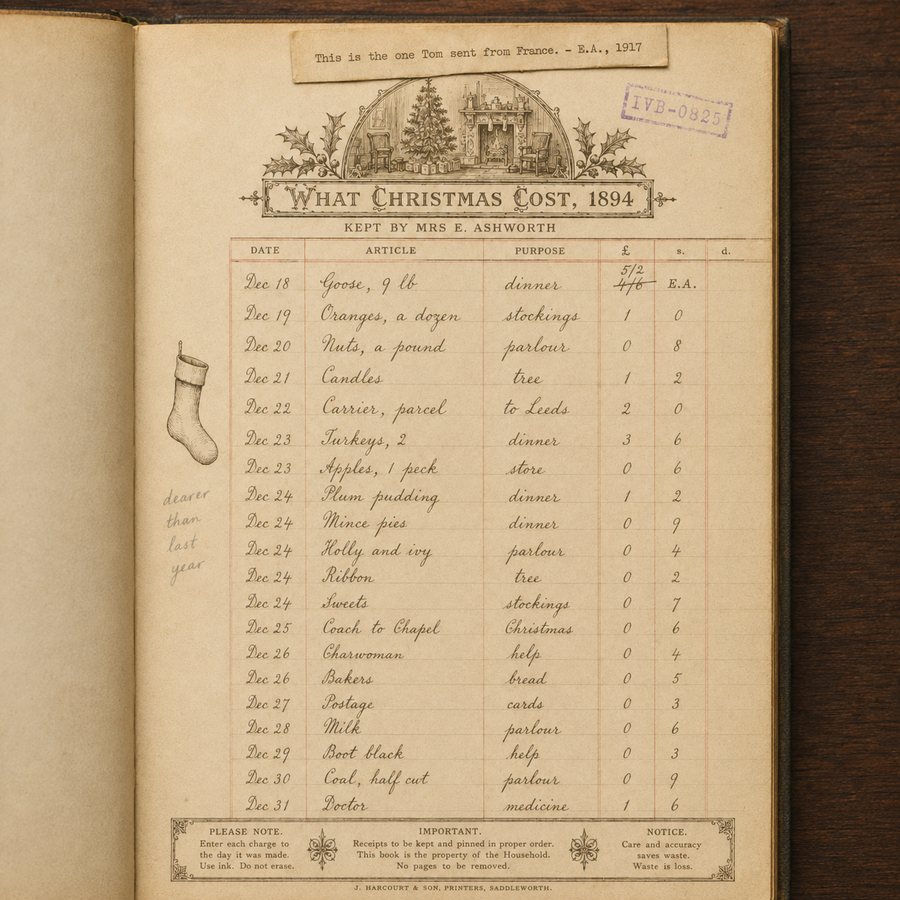 This is the one Tom sent from France. – E.A., 1917
IVB-0825
WHAT CHRISTMAS COST, 1894
KEPT BY MRS E. ASHWORTH
DATE ARTICLE PURPOSE £ s. d.
5/2
Dec 18 Goose, 9 lb dinner 4/6 E.A.
Dec 19 Oranges, a dozen stockings 1 0
Dec 20 Nuts, a pound parlour 0 8
Dec 21 Candles tree 1 2
Dec 22 Carrier, parcel to Leeds 2 0
Dec 23 Turkeys, 2 dinner 3 6
Dec 23 Apples, 1 peck store 0 6
Dec 24 Plum pudding dinner 1 2
Dec 24 Mince pies dinner 0 9
Dec 24 Holly and ivy parlour 0 4
Dec 24 Ribbon tree 0 2
Dec 24 Sweets stockings 0 7
Dec 25 Coach to Chapel Christmas 0 6
Dec 26 Charwoman help 0 4
Dec 26 Bakers bread 0 5
Dec 27 Postage cards 0 3
Dec 28 Milk parlour 0 6
Dec 29 Boot black help 0 3
Dec 30 Coal, half cut parlour 0 9
Dec 31 Doctor medicine 1 6
dearer
than
last
year
PLEASE NOTE.
Enter each charge to
the day it was made.
Use ink. Do not erase.
IMPORTANT.
Receipts to be kept and pinned in proper order.
This book is the property of the Household.
No pages to be removed.
NOTICE.
Care and accuracy
saves waste.
Waste is loss.
J. HARCOURT & SON, PRINTERS, SADDLEWORTH.